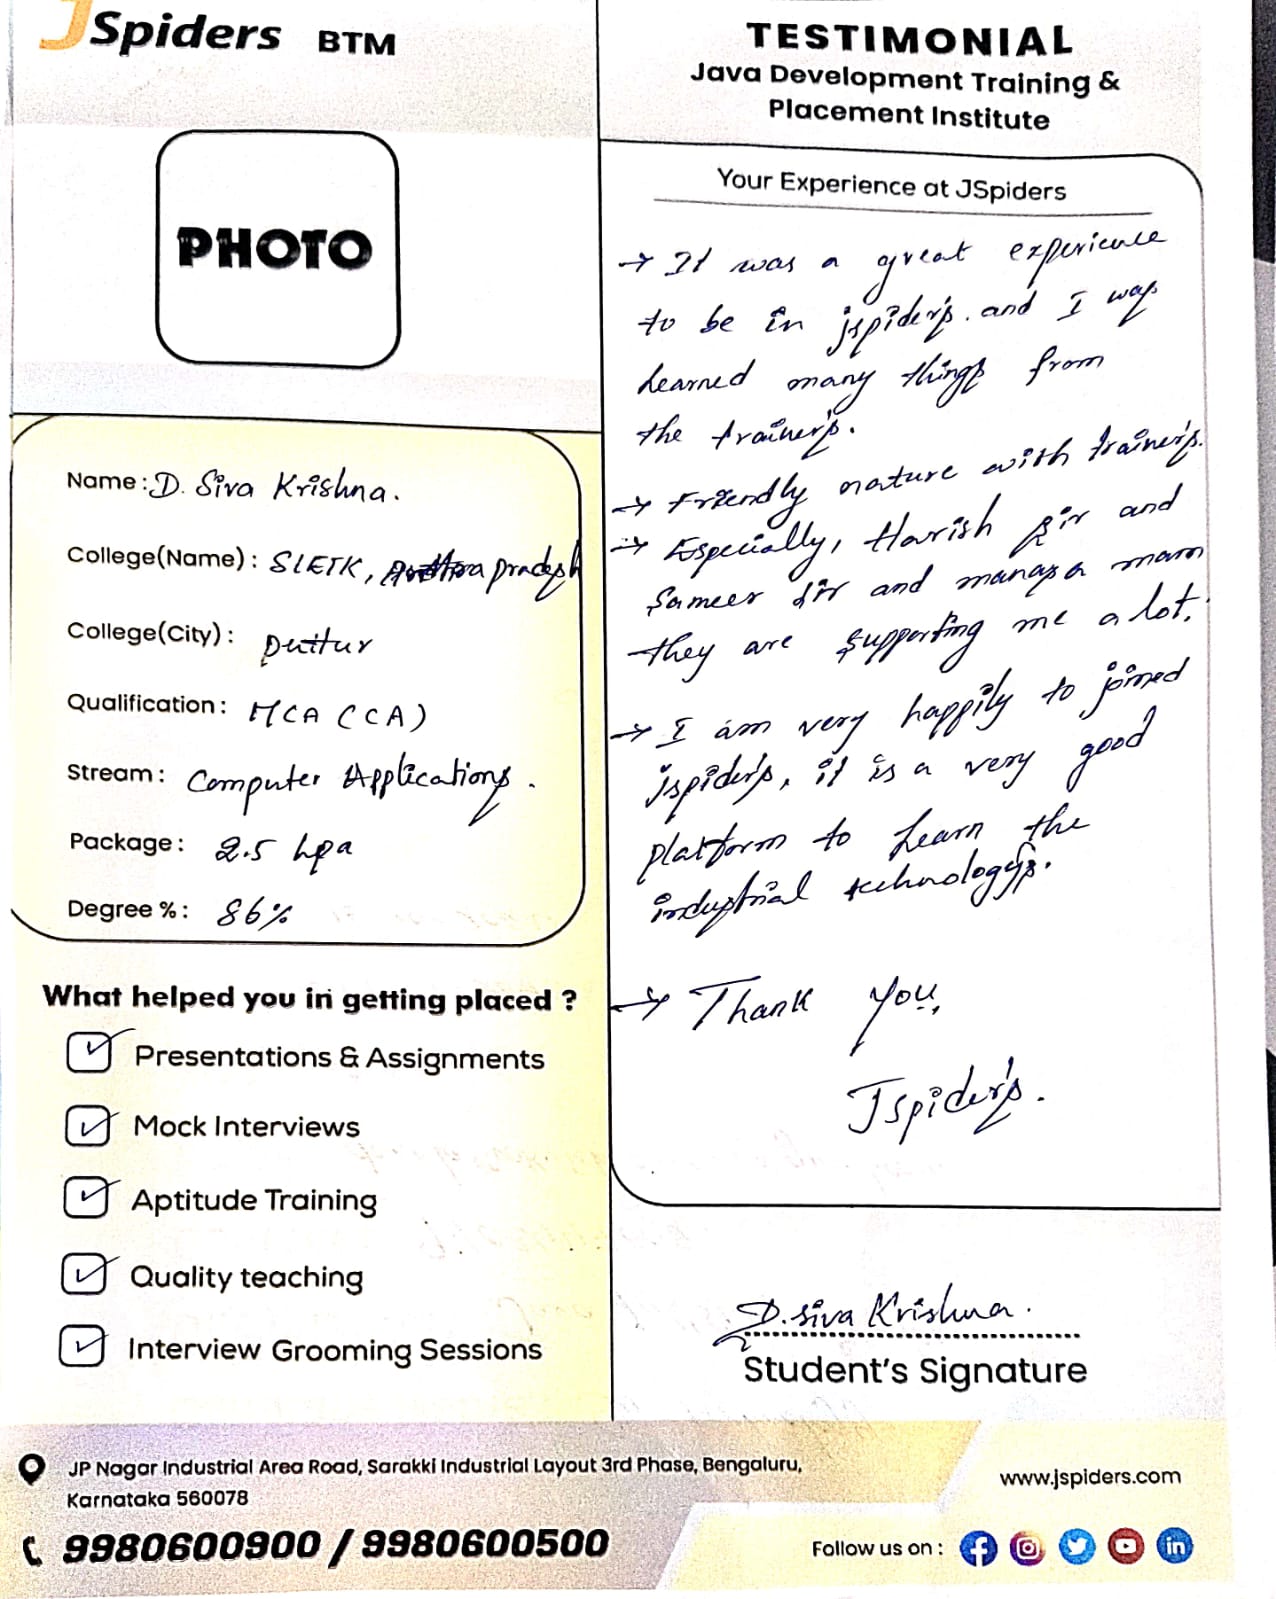 JSpiders BTM
PHOTO
Name : D. Siva Krishna.
College(Name) : SIETK, Andhra pradesh
College(City) : puttur
Qualification : MCA (CA)
Stream : Computer Applications.
Package : 2.5 lpa
Degree % : 86%
What helped you in getting placed ?
Presentations & Assignments
Mock Interviews
Aptitude Training
Quality teaching
Interview Grooming Sessions
TESTIMONIAL
Java Development Training &
Placement Institute
Your Experience at JSpiders
→ It was a great experience
to be in jspider's. and I was
Learned many things from
the trainer's.
→ Friendly nature with trainer's.
→ Especially, Harish sir and
Sameer sir and manasa mam
they are supporting me a lot.
→ I am very happily to joined
jspider's, it is a very good
platform to Learn the
industrial technology's.
→ Thank You,
Jspider's.
D. Siva Krishna.
Student's Signature
JP Nagar Industrial Area Road, Sarakki Industrial Layout 3rd Phase, Bengaluru,
Karnataka 560078
9980600900 / 9980600500
www.jspiders.com
Follow us on :